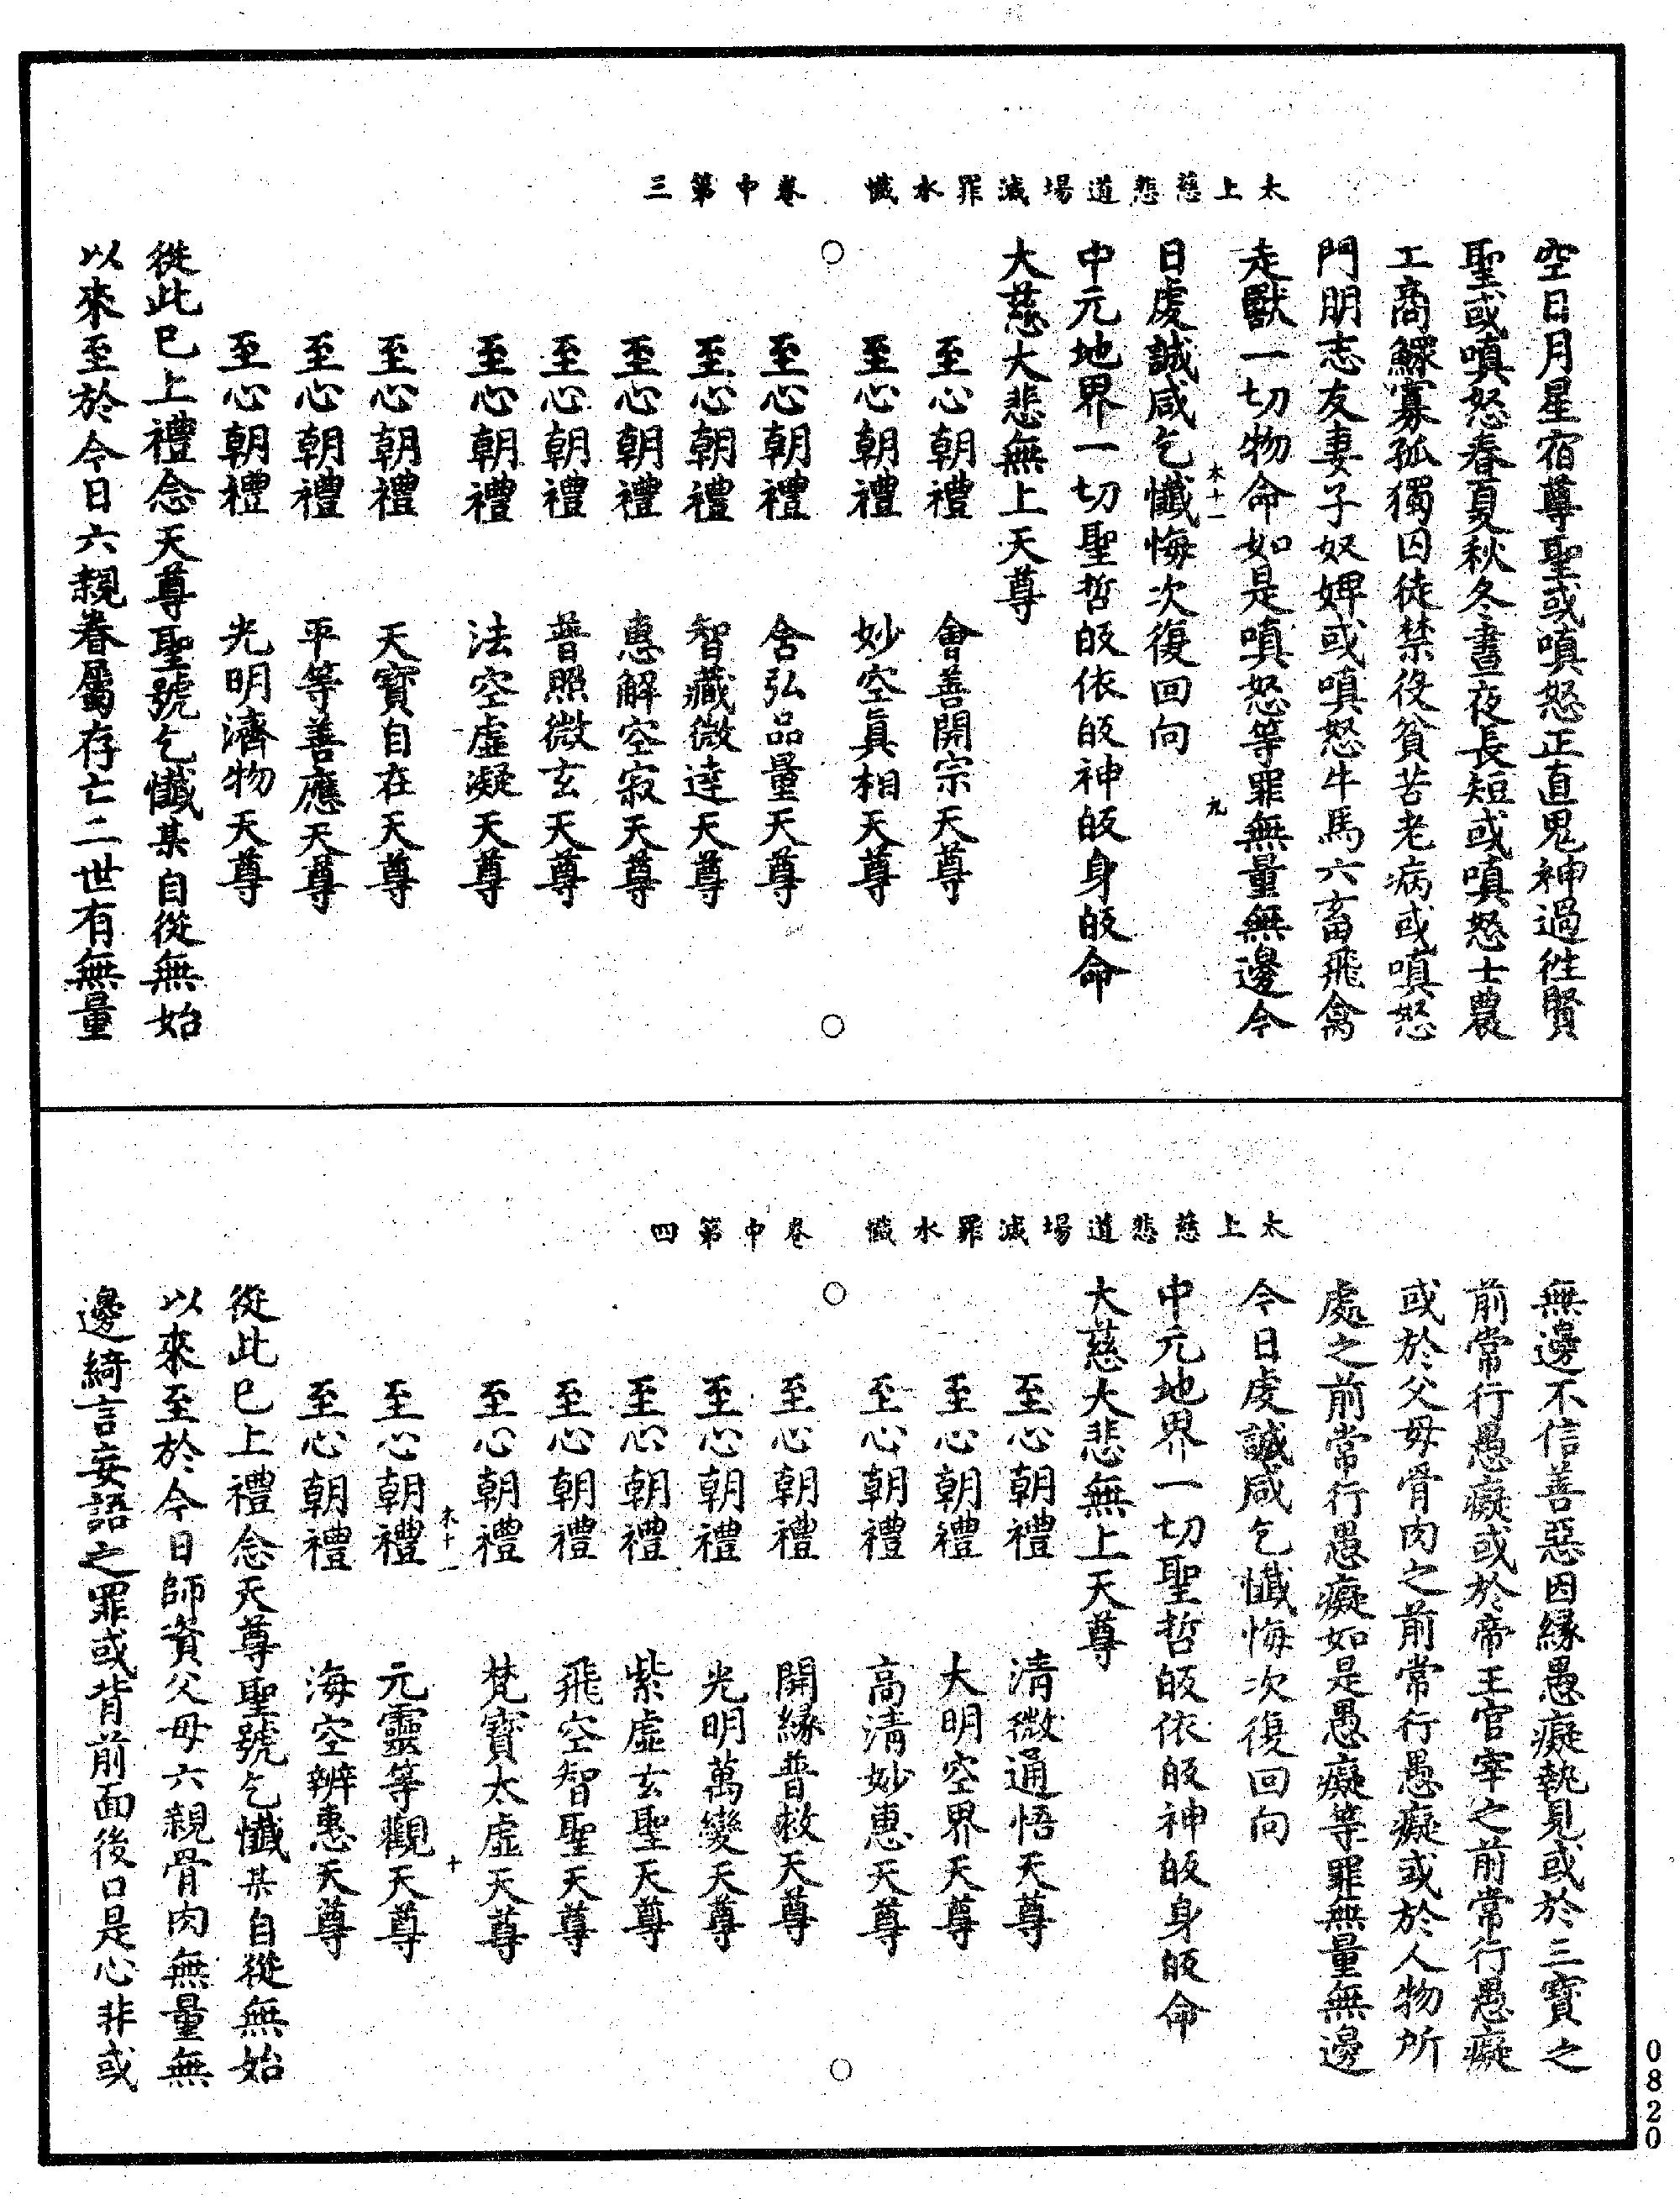 太上慈悲道場滅罪水懺　卷中第三
空日月星宿尊聖或嗔怒正直鬼神過徃賢
聖或嗔怒春夏秋冬晝夜長短或嗔怒士農
工商鰥寡孤獨囚徒禁役貧苦老病或嗔怒
門朋志友妻子奴婢或嗔怒牛馬六畜飛禽
走獸一切物命如是嗔怒等罪無量無邊今
木十一　九
日虔誠咸乞懺悔次復回向
中元地界一切聖哲皈依皈神皈身皈命
大慈大悲無上天尊
至心朝禮　會善開宗天尊
至心朝禮　妙空眞相天尊
至心朝禮　含弘品量天尊
至心朝禮　智藏微達天尊
至心朝禮　惠解空寂天尊
至心朝禮　普照微玄天尊
至心朝禮　法空虛凝天尊
至心朝禮　天寶自在天尊
至心朝禮　平等善應天尊
至心朝禮　光明濟物天尊
從此已上禮念天尊聖號乞懺某自從無始
以來至於今日六親眷屬存亡二世有無量
太上慈悲道場滅罪水懺　卷中第四
無邊不信善惡因緣愚癡執見或於三寶之
前常行愚癡或於帝王官宰之前常行愚癡
或於父母骨肉之前常行愚癡或於人物所
處之前常行愚癡如是愚癡等罪無量無邊
今日虔誠咸乞懺悔次復回向
中元地界一切聖哲皈依皈神皈身皈命
大慈大悲無上天尊
至心朝禮　清微通悟天尊
至心朝禮　大明空界天尊
至心朝禮　高清妙惠天尊
至心朝禮　開緣普救天尊
至心朝禮　光明萬變天尊
至心朝禮　紫虛玄聖天尊
至心朝禮　飛空智聖天尊
至心朝禮　梵寶太虛天尊
木十一　十
至心朝禮　元靈等觀天尊
至心朝禮　海空辨惠天尊
從此已上禮念天尊聖號乞懺某自從無始
以來至於今日師資父母六親骨肉無量無
邊綺言妄語之罪或背前面後口是心非或
0820